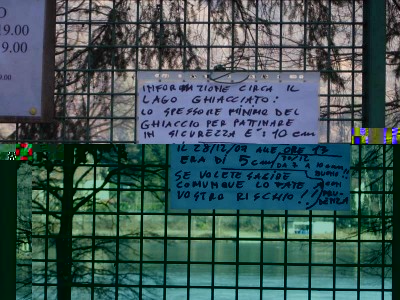 O
19.00
19.00
9.00
INFORMAZIONE CIRCA IL
LAGO GHIACCIATO:
LO SPESSORE MINIMO DEL
GHIACCIO PER PATINARE
IN SICUREZZA E': 10 cm
IL 28/12/09 ALLE ORE
ERA DI 5 cm
SE VOLETE SALIRE
COMUNQUE LO FATE
VOSTRO RISCHIO!!